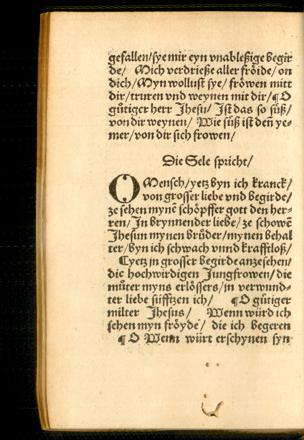 gefallen/ sye mir eyn vnableßige begir
de/ Mich verdrieße aller fröide/ on
dich/ Myn wollust sye/ fröwen mitt
dir/ truren vnd weynen mit dir/ ¶ O
gůtiger herr Jhesu/ Ist das so sůß/
von dir weynen/ Wie sůß ist deñ ye-
mer/ von dir sich frowen/
Die Sele spricht/
O Mensch/ yetz byn ich kranck/
von grosser liebe vnd begirde/
ze sehen mynẽ schöpffer gott den her-
ren/ In brynnender liebe/ ze schowẽ
Jhesum mynen brůder/ mynen behal
ter/ byn ich schwach vnnd krafftloß/
¶ yetz in grosser begirde anzesehen/
die hochwirdigen Jungfrowen/ die
můter myns erlößers/ in verwund-
ter liebe süfftzen ich/ ¶ O gůtiger
milter Jhesus/ Wenn würd ich
sehen myn fröyde/ die ich begeren
¶ O Wenn würt erschynen syn